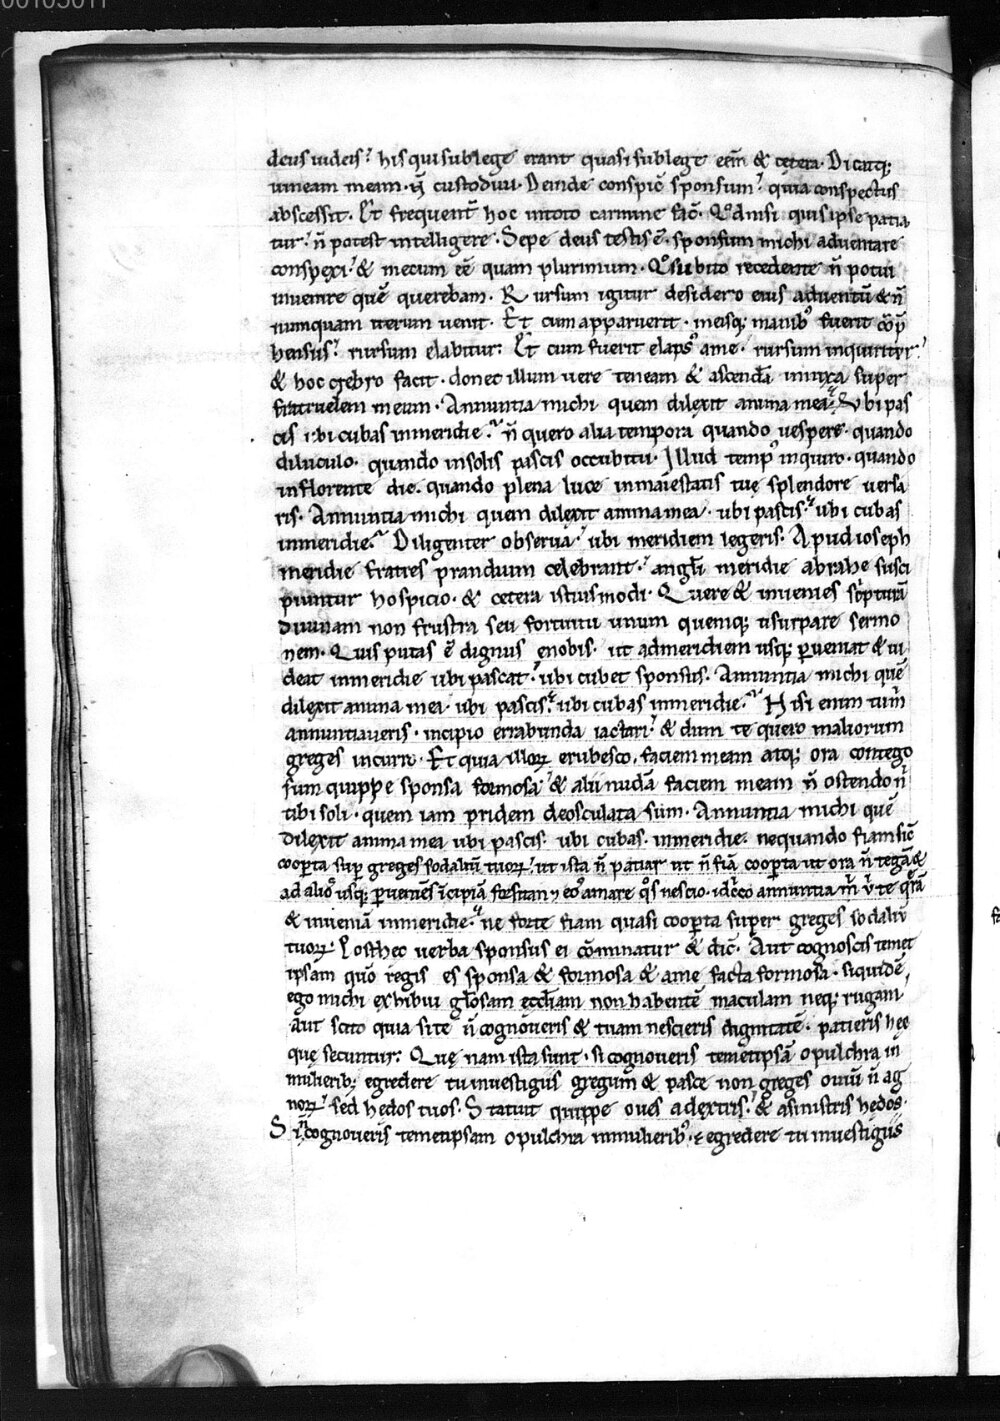 00105011
deus iudeis? his qui sub lege erant quasi sub lege eēm & cetera. Dicatq;
uineam meam. n̄ custodiui. Deinde conspic̄ sponsum? quia conspectus
abscessit. Et frequent̄ hoc intoto carmine fac̄. Qđ nisi quis ipse patia
tur? n̄ potest intelligere. Sepe deus testis ē. sponsum michi aduentare
conspexi? & mecum eē quam plurimum. Qo subito recedente n̄ potui
inuenire quē querebam. Rursum igitur desidero eius aduentū & n̄
numquam iterum uenit. Et cum apparuerit. meisq; manib; fuerit cōp̄
hensus? rursum elabitur: Et cum fuerit elaps; ame. rursum inquiritur?
& hoc crebro facit. donec illum uere teneam & ascendā innixa super
fratruelem meum. Annuntia michi quem dilexit anima mea? Vbi pas
cis ubi cubas inmeridie? n̄ quero alia tempora quando uespere. quando
diluculo. quando insolis pascis occubitu. Illud temp; inquiro. quando
inflorente die. quando plena luce inmaiestatis tuę splendore uersa
ris. Annuntia michi quem dilexit anima mea. ubi pascis? ubi cubas
inmeridie? Diligenter obserua? ubi meridiem legeris. Apud ioseph
meridie fratres prandium celebrant? angl̄i meridie abrahe susci
piuntur hospicio. & cetera istius modi. Quere & inuenies sc̄pturā
diuinam non frustra seu fortuitu unum quemq; usurpare sermo
nem. Quis putas ē dignus enobis. ut admeridiem usq; p̄ueniat & ui
deat inmeridie ubi pascat? ubi cubet sponsus. Annuntia michi quē
dilexit anima mea. ubi pascis? ubi cubas inmeridie? Nisi enim tum̄
annuntiaueris. incipio errabunda iactari? & dum te quero maliorum
greges incurro. Et quia illoꝝ erubesco. faciem meam atq; ora contego
sum quippe sponsa formosa? & alii nudā faciem meam n̄ ostendo n̄
tibi soli. quem iam pridem deosculata sum. Annuntia michi quē
dilexit anima mea ubi pascis. ubi cubas. inmeridie. nequando fiam sic̄
cooperta sup̄ greges sodaliū tuoꝝ? ut ista n̄ patiar ut n̄ fiā cooperta ut ora n̄ tegā &
ad alios usq; p̄ueniēs īcipiā amare q̊s nescio. idc̄co annuntia m̄ te q̄rā
& inueniā inmeridie? ne forte fiam quasi cooperta super greges sodaliū
tuoꝝ? Posthec uerba sponsus ei cōminatur & dic̄. Aut cognoscis temet
ipsam quō regis es sponsa & formosa & ame facta formosa. siquidē
ego michi exhibui gl̄osam eccl̄iam non habentē maculam neq; rugam
aut scito quia si te n̄ cognoueris & tuam nescieris dignitatē. patieris hęc
quę secuntur: Quę nam ista sunt. si cognoueris temetipsā o pulchra in
mulierib; egredere tu inuestigiis gregum & pasce non greges ouiū n̄ ag
noꝝ? sed hedos tuos. Statuit quippe oues adextris? & asinistris hedos.
Si n̄ cognoueris temetipsam o pulchra inmulierib; egredere tu inuestigiis